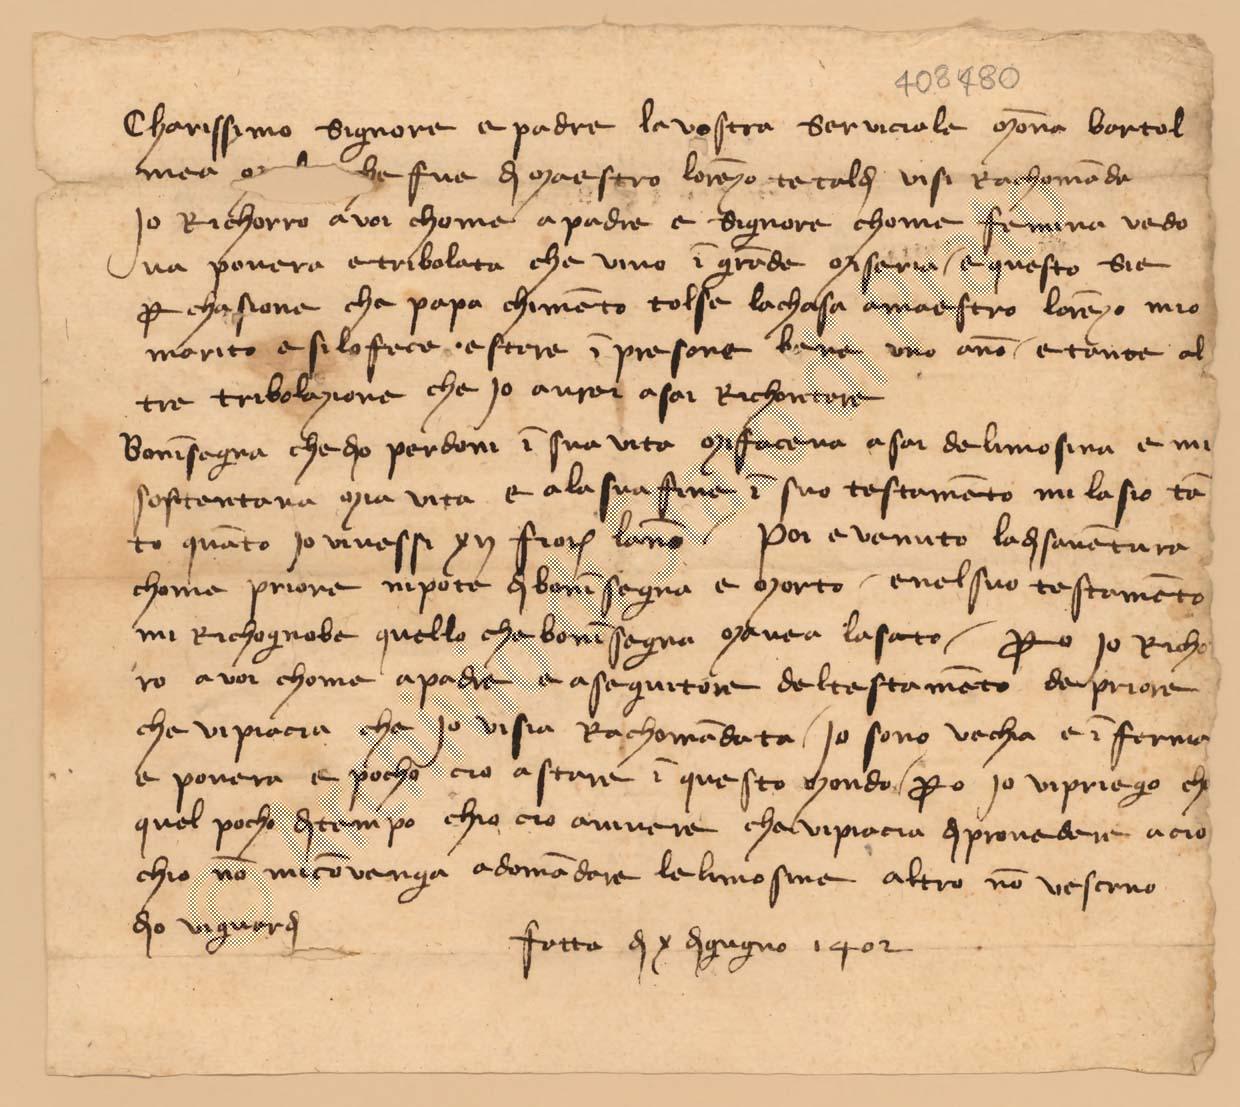 408480
Charissimo Signore e padre la vostra Serviciale Mõna bartol
mea che fue di Maestro lorẽzo tecaldi visi Rachomãda
Jo Richorro a voi chome a padre e Signore chome femina vedo
va povera e tribolata che vivo ĩ grãde Miseria / e questo Sie
ꝑ chasione che papa chimẽto tolse la chasa a maestro lorẽzo mio
marito e si lo fece essere ĩ presone bene uno año / e tante al
tre tribolazione che Jo avrei asai Richontare
Bonĩsegna che dio perdoni ĩ sua vita Mi faceva asai de limosina e mi
sostentava Mia vita e ala sua fine ĩ suo testamẽto mi lasio tã
to quãto Jo vivessi xij fiori lãno / Poi e venuto la disavẽtura
chome priore nipote di bonĩsegna e Morto / e nel suo testamẽto
mi Richognobe quello che bonĩsegna Mavea lasato / ꝑo Jo Richo
ro a voi chome a padre e asequitore del testamẽto de priore
che vi piacia che Jo vi sia Rachomãdata / Jo sono vechia e ĩferma
e povera e pocho cio a stare ĩ questo Mondo / ꝑo Jo vi priego che
quel pocho di tempo chio cio a vivere che vi piacia di provedere acio
chio nõ mi cõvenga adomãdare le limosine altro nõ vescrivo
dio vi guardi
fatta di x di gugno 1402